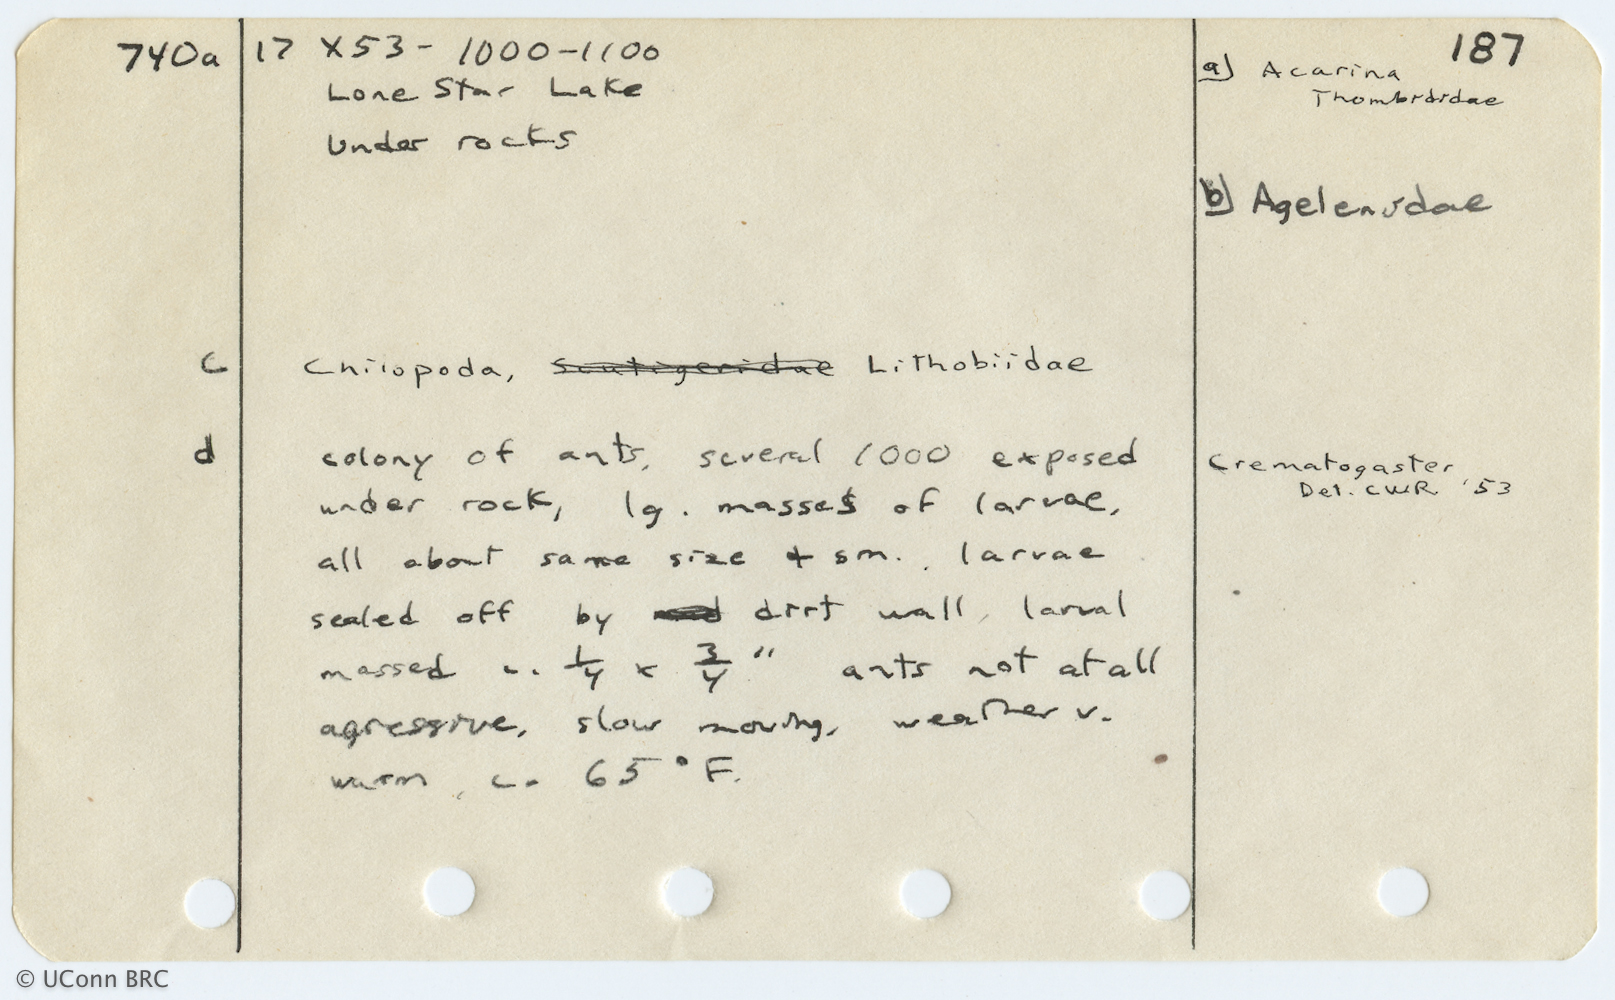 740a 17 X 53 - 1000-1100 187
Lone Star Lake
Under rocks
a) Acarina
Thombididae
b) Agelenidae
c Chilopoda, Scutigeridae Lithobiidae
d colony of ants, several 1000 exposed
under rock, lg. masses of larvae,
all about same size + sm., larvae
sealed off by dirt wall, larval
massed c. 1/4 x 3/4" ants not at all
agressive, slow moving, weather v.
warm, c. 65°F.
Crematogaster
Det. CWR '53
© UConn BRC